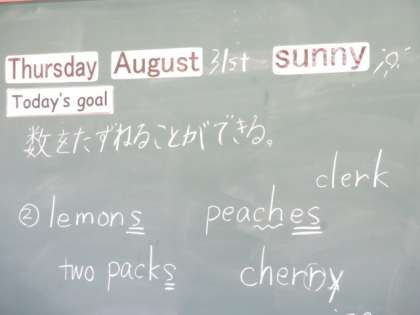 Thursday August 31st sunny
Today's goal
数をたずねることができる。
clerk
② lemons peaches
two packs cherry